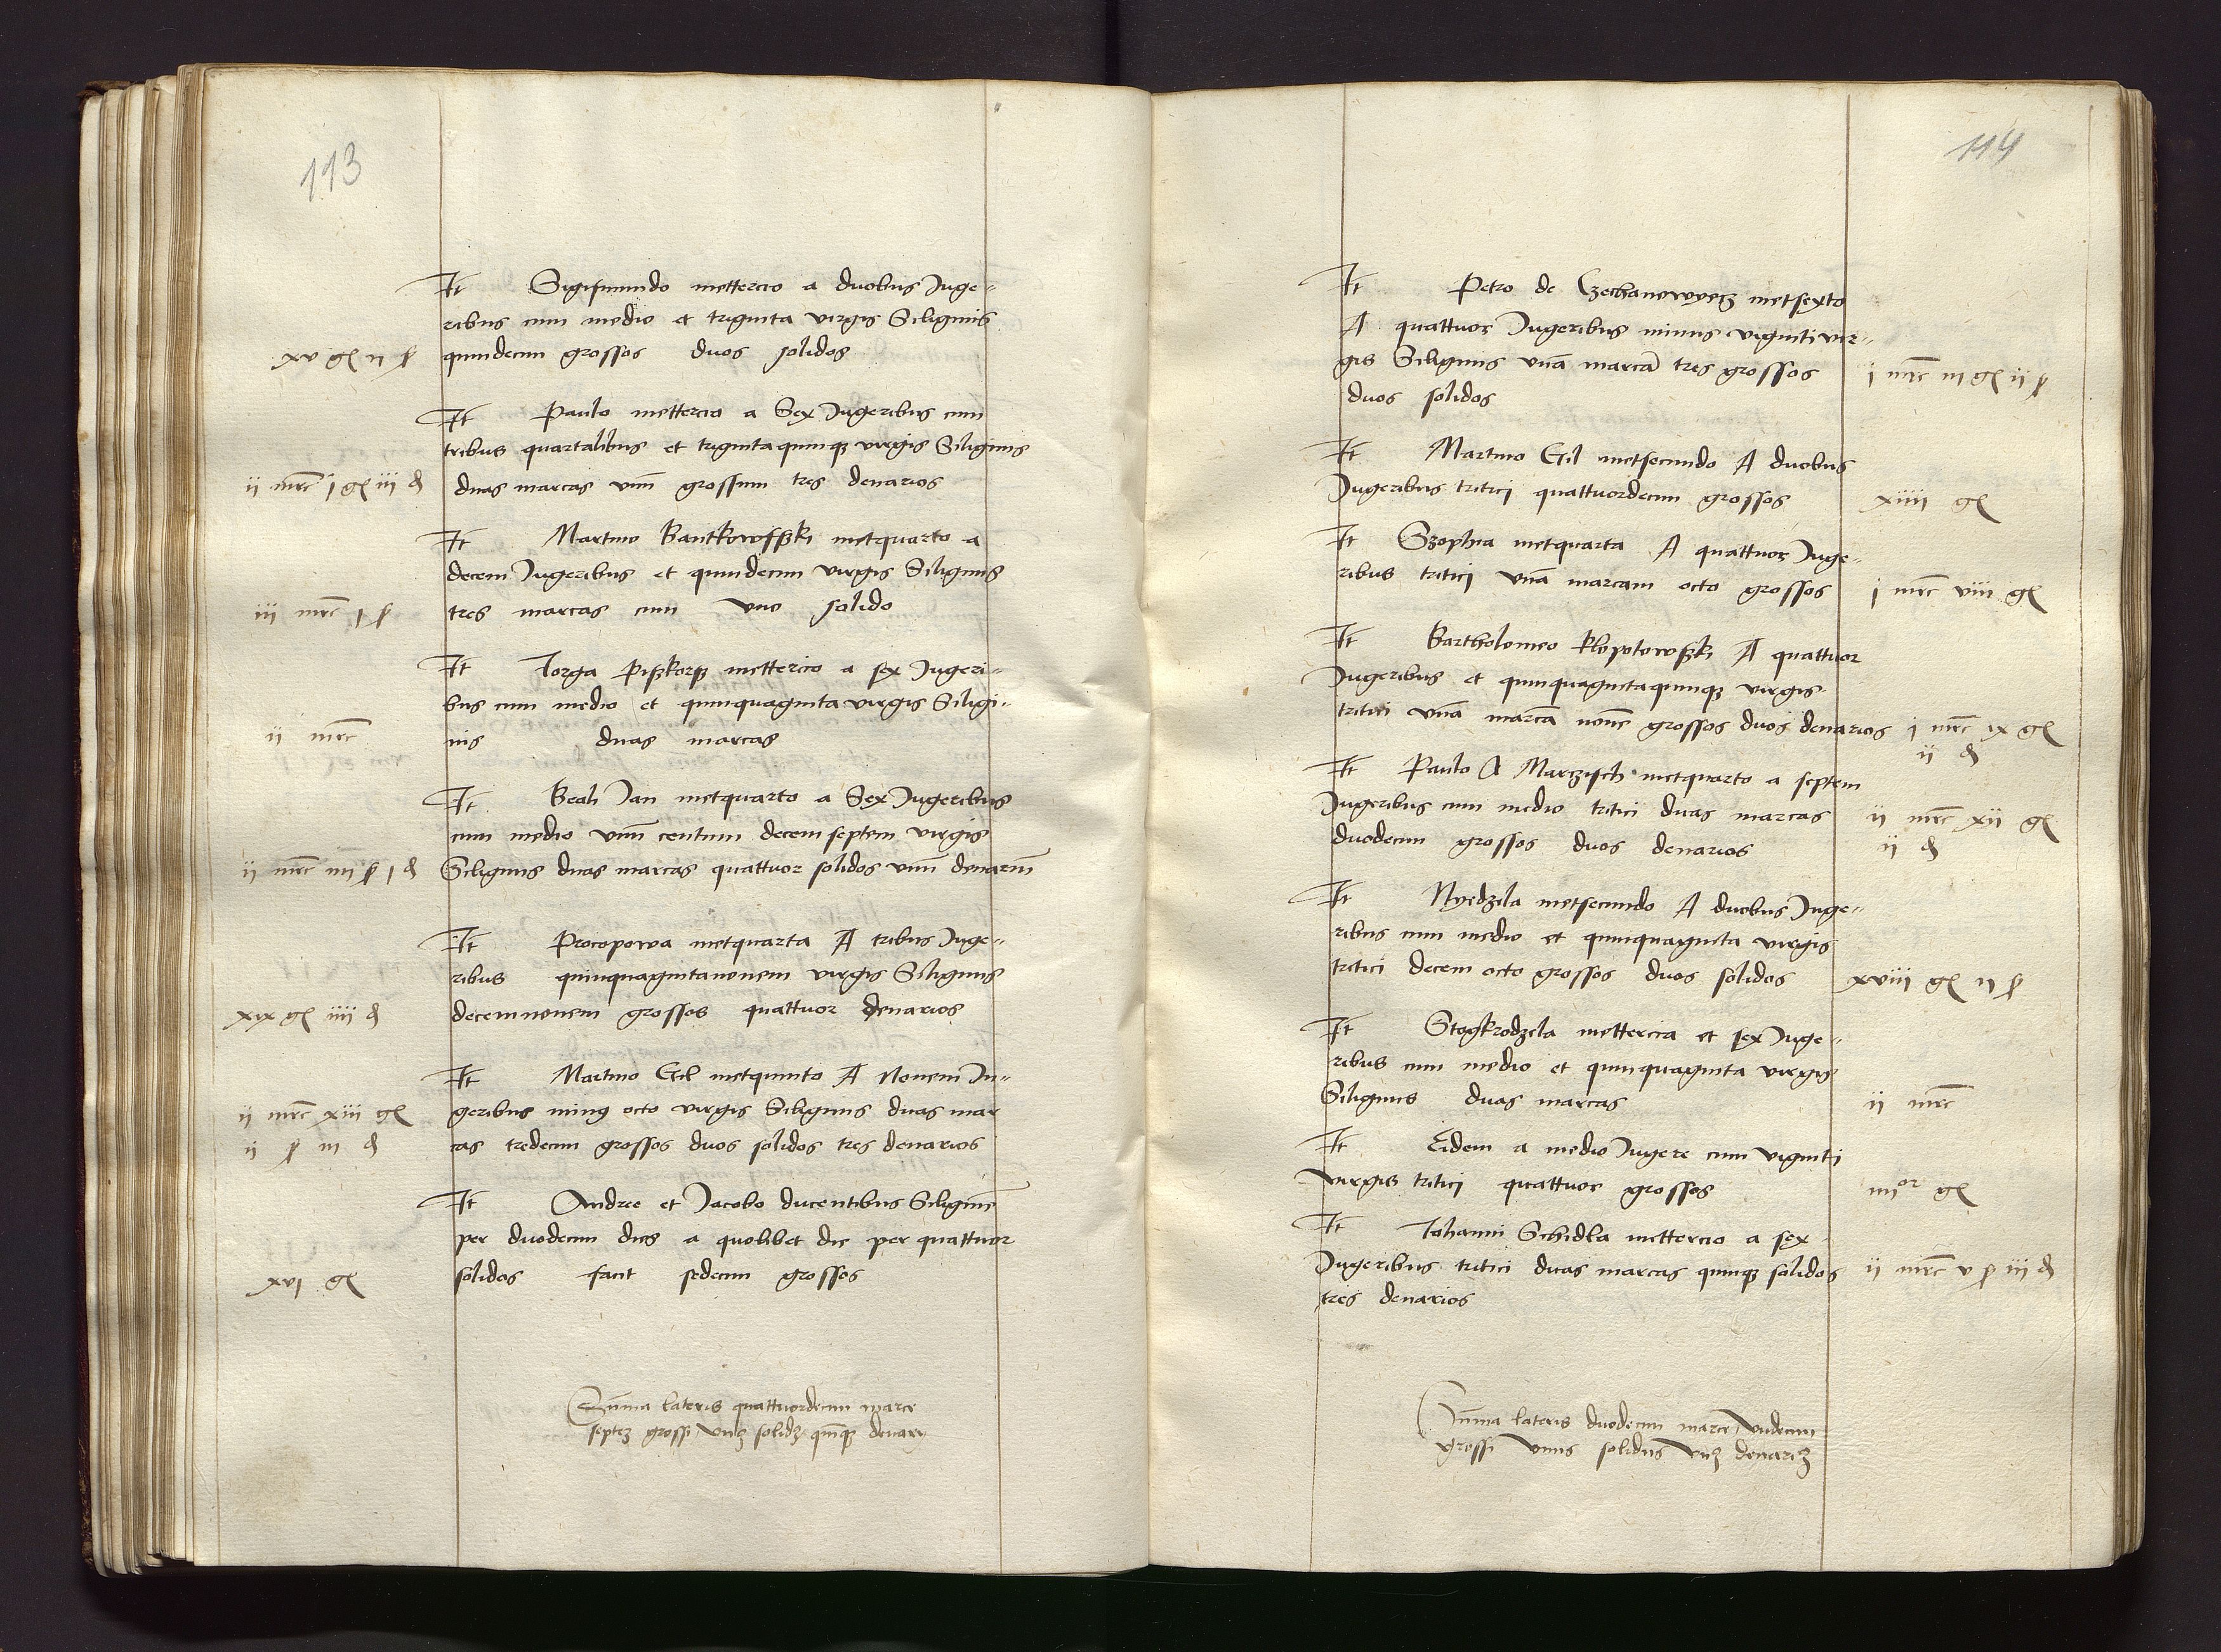 113
It Sigismundo mettercio a duobus Juge-
ribus cum medio et triginta virgis Siliginis
xv gl ii ſ quindecim grossos duos solidos
It Paulo mettercio a Sex Jugeribus cum
tribus quartalibus et trigintaquinque virgis Siliginis
ii mrc i gl iii d duas marcas unum grossum tres denarios
It Martino Bantkowsski metquarto a
decem Jugeribus et quindecim virgis Siliginis
iii mrc i ſ tres marcas cum uno solido
It Jorga Piszkorz mettercio a sex Jugeri-
bus cum medio et quinquaginta virgis Siligi-
ii mrc nis duas marcas
It Beali Jan metquarto a Sex Jugeribus
cum medio unum centum decem septem virgis
ii mrc iiii ſ i d Siliginis duas marcas quattuor solidos unum denarium
It Procopowa metquarta A tribus Juge-
ribus quinquagintanovem virgis Siliginis
xix gl iiii d decemnovem grossos quattuor denarios
It Martino Gil metquinto A Novem Ju-
ii mrc xiii gl geribus minus octo virgis Siliginis duas mar
ii ſ iii d cas tredecim grossos duos solidos tres denarios
It Andree et Jacobo ducentibus Siliginem
per duodecim dies a quolibet die per quattuor
xvi gl solidos facit sedecim grossos
Summa lateris quattuordecim marce
septem grossi unus solidus quinque denarii
114
It Petro de Czechanowyecz metsexto
A quattuor Jugeribus minus viginti vir-
gis Siliginis unam marcam tres grossos i mrc iii gl ii ſ
duos solidos
It Martino Gil metsecundo A duobus
Jugeribus tritici quattuordecim grossos xiiii gl
It Szophia metquarta A quattuor Juge-
ribus tritici unam marcam octo grossos i mrc viii gl
It Bartholomeo Klopotowski A quattuor
Jugeribus et quinquagintaquinque virgis
tritici unam marcam novem grossos duos denarios i mrc ix gl
ii d
It Paulo A Marczisch metquarto a septem
Jugeribus cum medio tritici duas marcas ii mrc xii gl
duodecim grossos duos denarios ii d
It Nyedzela metsecundo A duobus Juge-
ribus cum medio et quinquaginta virgis
tritici decem octo grossos duos solidos xviii gl ii ſ
It Stogkrodzela mettercia et sex Juge-
ribus cum medio et quinquaginta virgis
Siliginis duas marcas ii mrc
It Eidem a medio Jugere cum viginti
virgis tritici quattuor grossos iiii or gl
It Johanni Schidla mettercio a sex
Jugeribus tritici duas marcas quinque solidos ii mrc v ſ iii d
tres denarios
Summa lateris duodecim marce Undecim
grossi unus solidus unus denarius